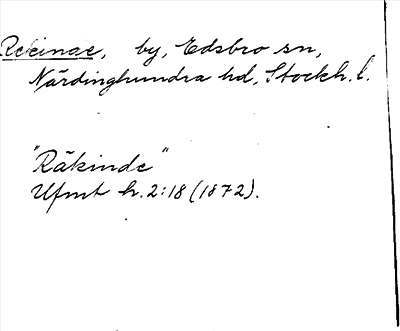 Rekinde, by, Edsbro sn,
Närdinghundra hd, Stockh. l.
"Räkinde"
Ufmt h. 2:18 (1872).